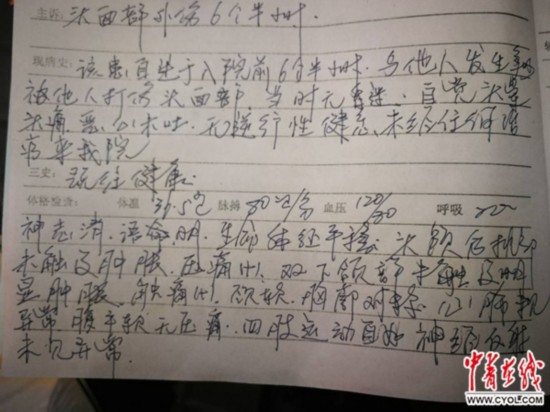 主诉: 头面部外伤6个半小时.
现病史: 该患自述于入院前6个半小时.与他人发生
被他人打伤头面部,当时无昏迷.自觉头晕
头痛.恶心未吐.无逆行性健忘.未经任何治
疗来我院
三史: 既往健康
体格检查: 体温 36.5℃ 脉搏 80次/分 血压 120/80 呼吸
神志清.语言明.生命体征平稳.头颅后枕部
未触及肿胀.压痛(+).双下颌部未触及明
显肿胀.触痛(+).颈软.胸廓对称.心肺未见
异常.腹平软无压痛.四肢运动自如神经反射
未见异常.
中青在线
WWW.CYOL.COM